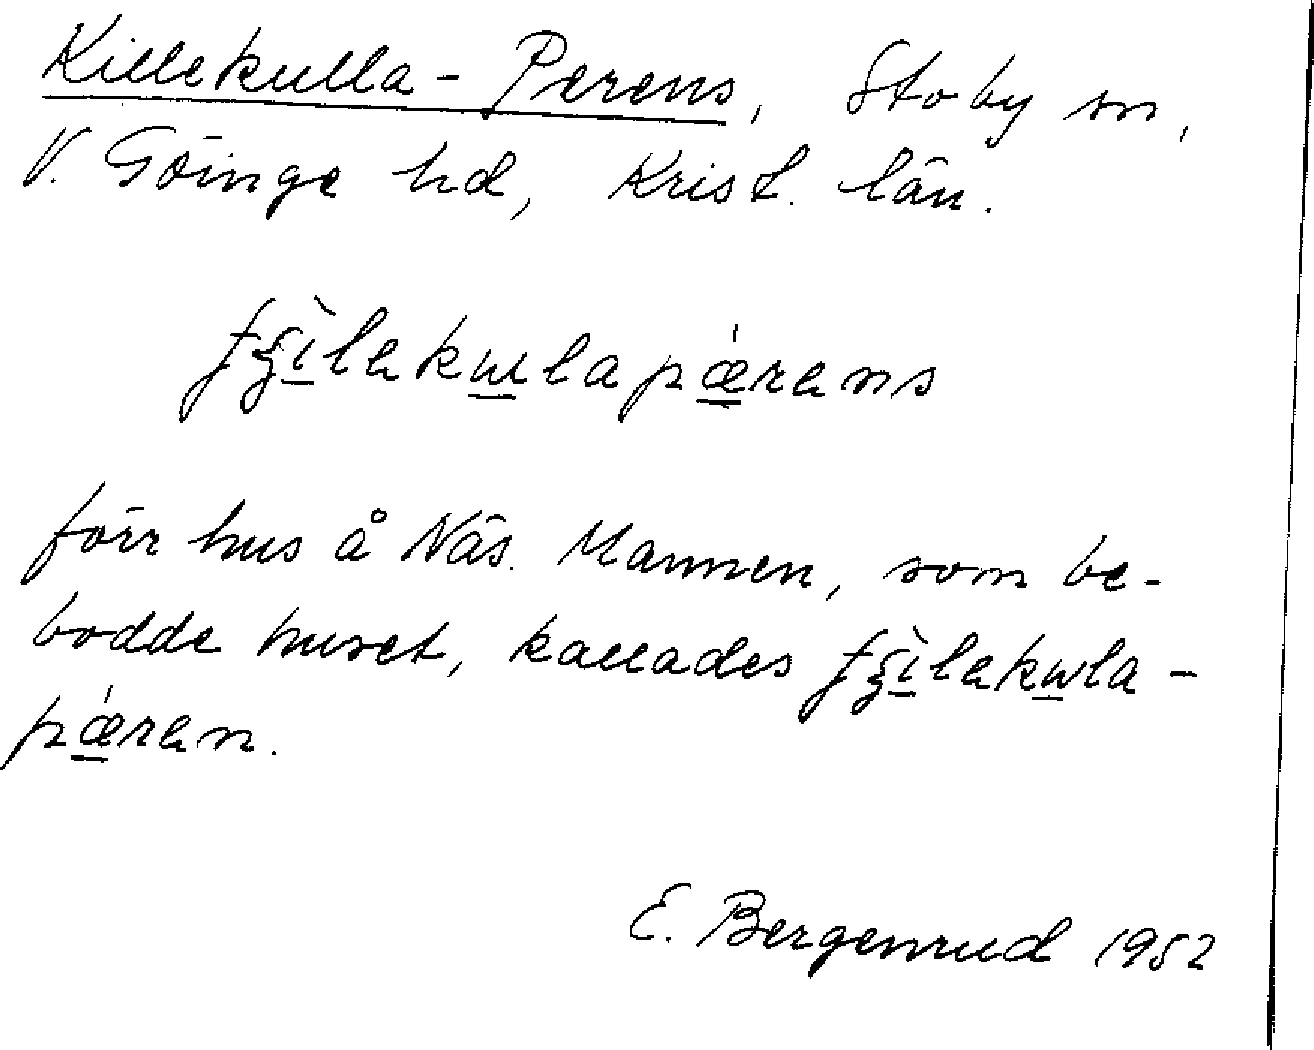 Killekulla-Perens, Stoby sn,
V. Göinge hd, Krist. län.
ʄʒìlakɯlapǽrans
förr hus å Näs. Mannen, som be-
bodde huset, kallades ʄʒìlakɯla-
pǽran.
E. Bergenrud 1952